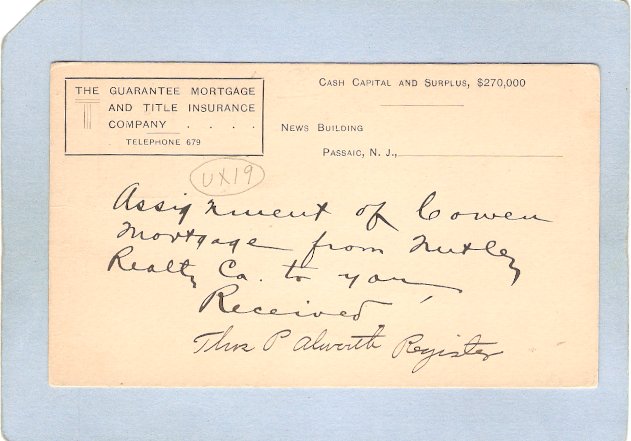 THE GUARANTEE MORTGAGE
AND TITLE INSURANCE
COMPANY . . . .
TELEPHONE 679
CASH CAPITAL AND SURPLUS, $270,000
NEWS BUILDING
PASSAIC, N. J.,
UX19
Assignment of Cowen
Mortgage from Nutley
Realty Co. to you
Received
Thos P Alworth Register